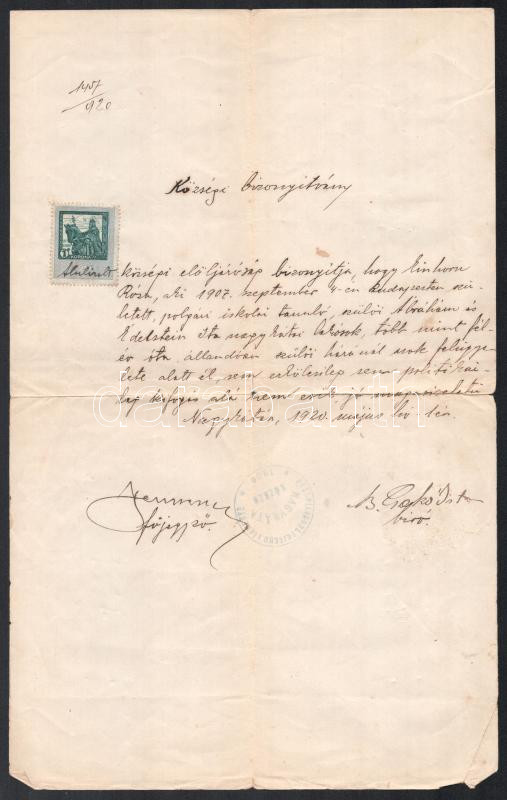 147/920
Községi bizonyitvány
6
KORONA
Alulirott községi elöljáróság bizonyitja, hogy Einhorn
Róza, ki 1907. szeptember 4-én Budapesten szü-
letett, polgári iskolai tanuló, szülői Ábrahám és
Edelstein Ita nagykátai lakosok, több mint fél-
év óta állandóan szülői házánál azok felügye-
lete alatt él, sem erkölcsileg sem politikai-
lag kifogás alá nem esik, jó magaviseletü
Nagykátán, 1920. május hó 1én.
főjegyző.
biró.
NAGYKÁTA
darabanth